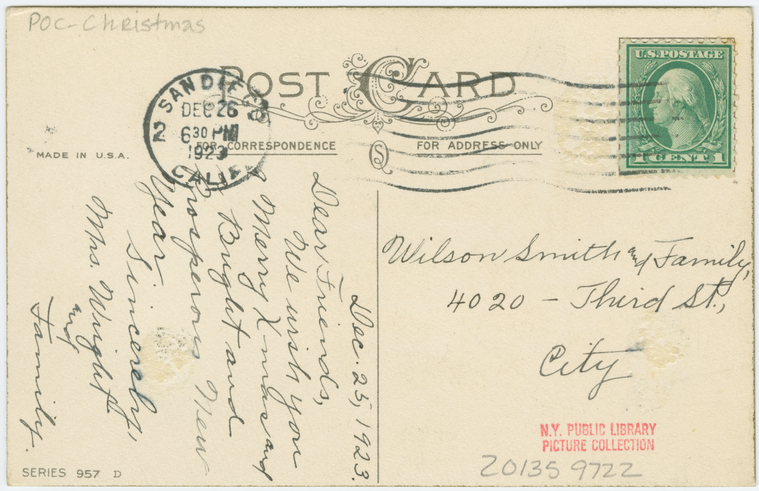 POC-Christmas
POST CARD
SAN DIEGO
DEC 26
6 30 PM
1923
CALIF.
2
U.S. POSTAGE
1 CENT 1
MADE IN U.S.A.
FOR CORRESPONDENCE
FOR ADDRESS ONLY
Dec. 25, 1923.
Dear Friends,
We wish you
Merry X-mas and
Bright and
Prosperous New
Year
Sincerely,
Mrs. Wright
and
Family.
Wilson Smith and Family,
4020 - Third St.,
City
N.Y. PUBLIC LIBRARY
PICTURE COLLECTION
Z0135 9722
SERIES 957 D